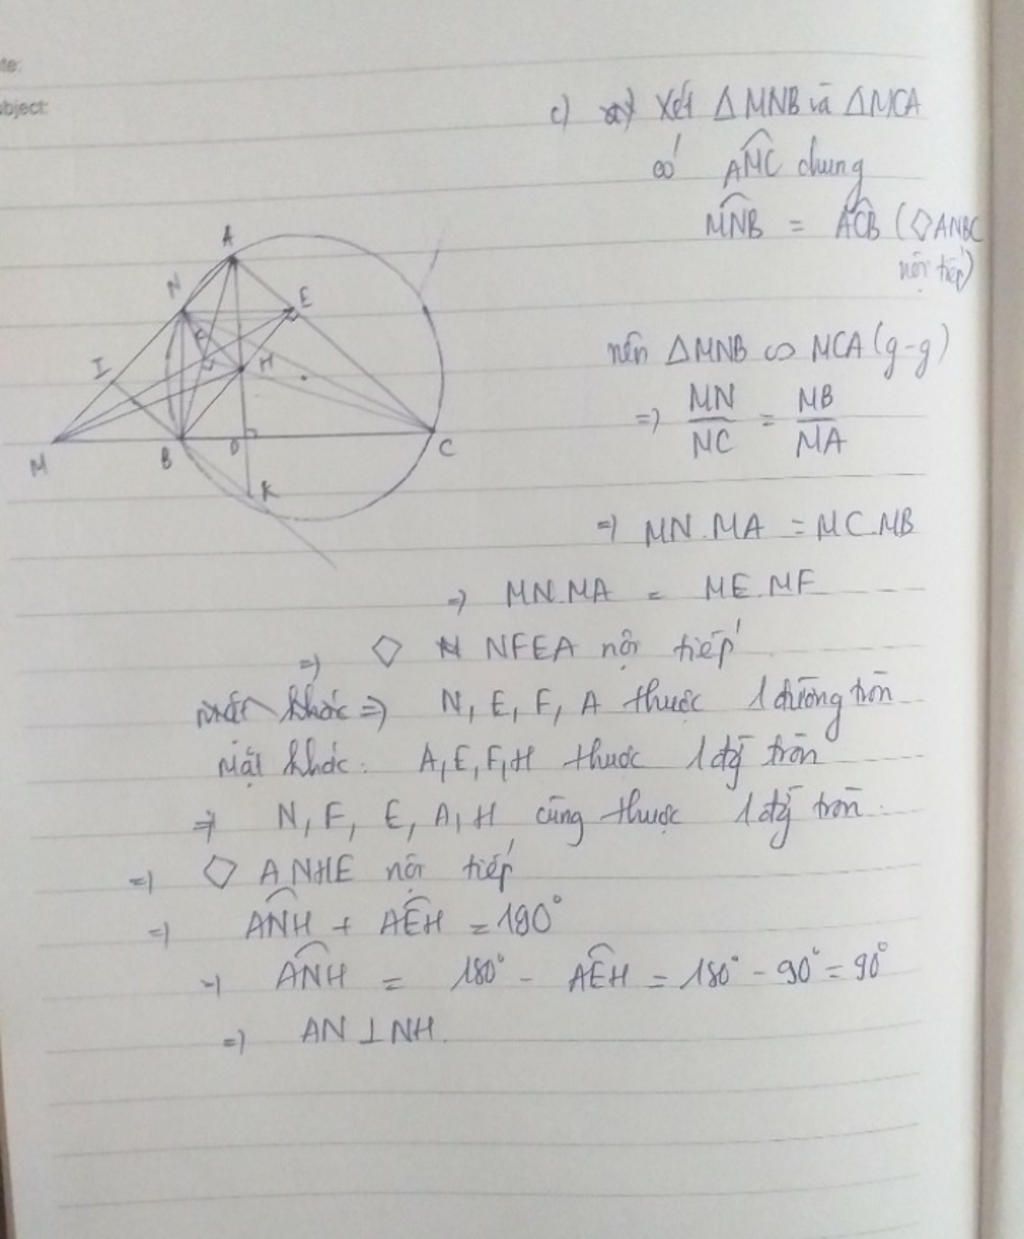 te:
bject:
c) Xét ΔMNB và ΔMCA
có AMC chung
MNB = ACB (◇ANBC
nội tiếp)
A
N
E
F
I
H
M
B
D
C
K
nên ΔMNB ∽ MCA (g-g)
=> MN/MC = MB/MA
=> MN.MA = MC.MB
=> MN.MA = ME.MF
=> ◇ NFEA nội tiếp
mặt khác => N, E, F, A thuộc 1 đường tròn
Mặt khác: A, E, F, H thuộc 1 đg tròn
=> N, F, E, A, H cùng thuộc 1 đg tròn.
=> ◇ ANHE nội tiếp
=> ANH + AEH = 180°
=> ANH = 180° - AEH = 180° - 90° = 90°
=> AN ⊥ NH.